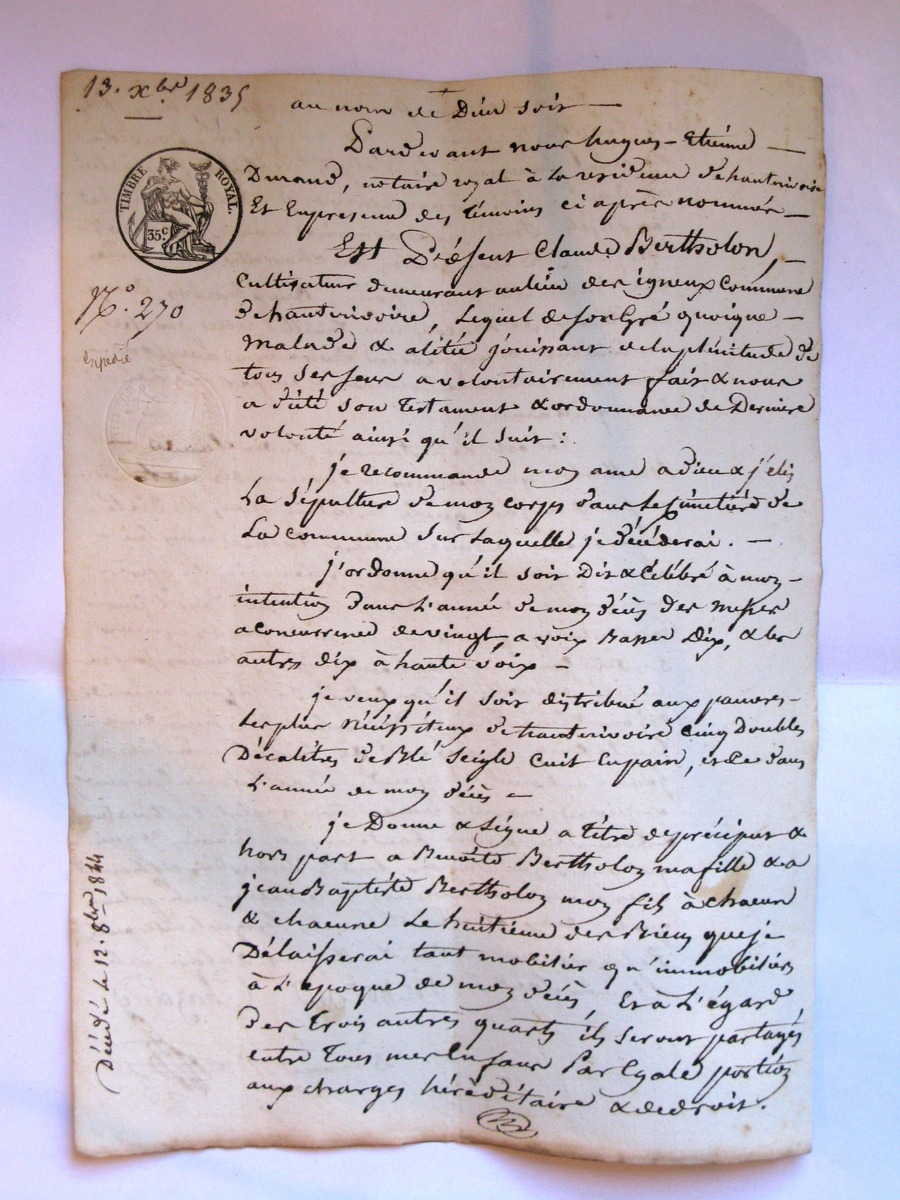 13. xbre 1835
au nom de Dieu soit
Pardevant nous hugues-Etiénne
Durand, notaire royal à la residence d'hauterivoire
Et En presence des témoins ci après nommés
TIMBRE ROYAL.
35c
Est Présent Claude Bertholon,
Cultivateur demeurant au lieu des igneux Commune
N° 270
d'hauterivoire, Lequel de son Gré quoique
Expedié
malade & alité jouissant de la plénitude de
tous ses sens a volontairement fait & nous
a dicté son testament & ordonnance de Derniere
volonté ainsi qu'il suit :
je recommande mon ame a dieu & j'elis
La sépulture de mon corps dans le Cimetiére de
La commune sur laquelle je décéderai.
j'ordonne qu'il soit Dit & Célébré à mon
intention dans L'année de mon décès des messes
a concurrence de vingt, a voix Basse Dix, & les
autres dix à haute voix
je veux qu'il soit distribué aux pauvres
Les plus nécessiteux de hauterivoire cinq Doubles
Décalitres de Blé Seigle Cuit En pain, & ce dans
L'année de mon décès
je Donne & Légue a titre de préciput &
hors part a Benoite Bertholon ma fille & a
jean Baptiste Bertholon mon fils à chacun
& chacune Le huitiéme des Biens que je
Délaisserai tant mobiliers qu'immobiliers
à L'epoque de mon décès, Et à L'égard
des trois autres quarts ils seront partagés
entre tous mes Enfans Par Egale portion
aux charges héréditaires & de droit.
Décédé le 12. 8bre 1844